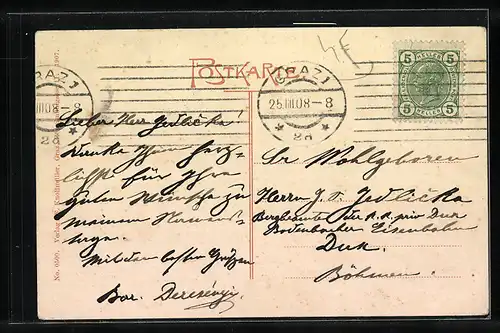 POSTKARTE
GRAZ 1
25.III.08-8
2d
GRAZ 1
III 08-8
2d
5 5
HELLER
5 5
Lieber Herr Jedlička!
Danke Ihnen herz-
lichst für Ihre
guten Wünsche zu
meinem Namens-
tage.
Mit den besten Grüßen
Bar.
Sr Wohlgeboren
Herrn J. T. Jedlička
Bergbeamte der K. K. priv Dux
Bodenbacher Eisenbahn
Dux.
Böhmen.
No. 6500. Verlag Knollmüller, Graz 1907.